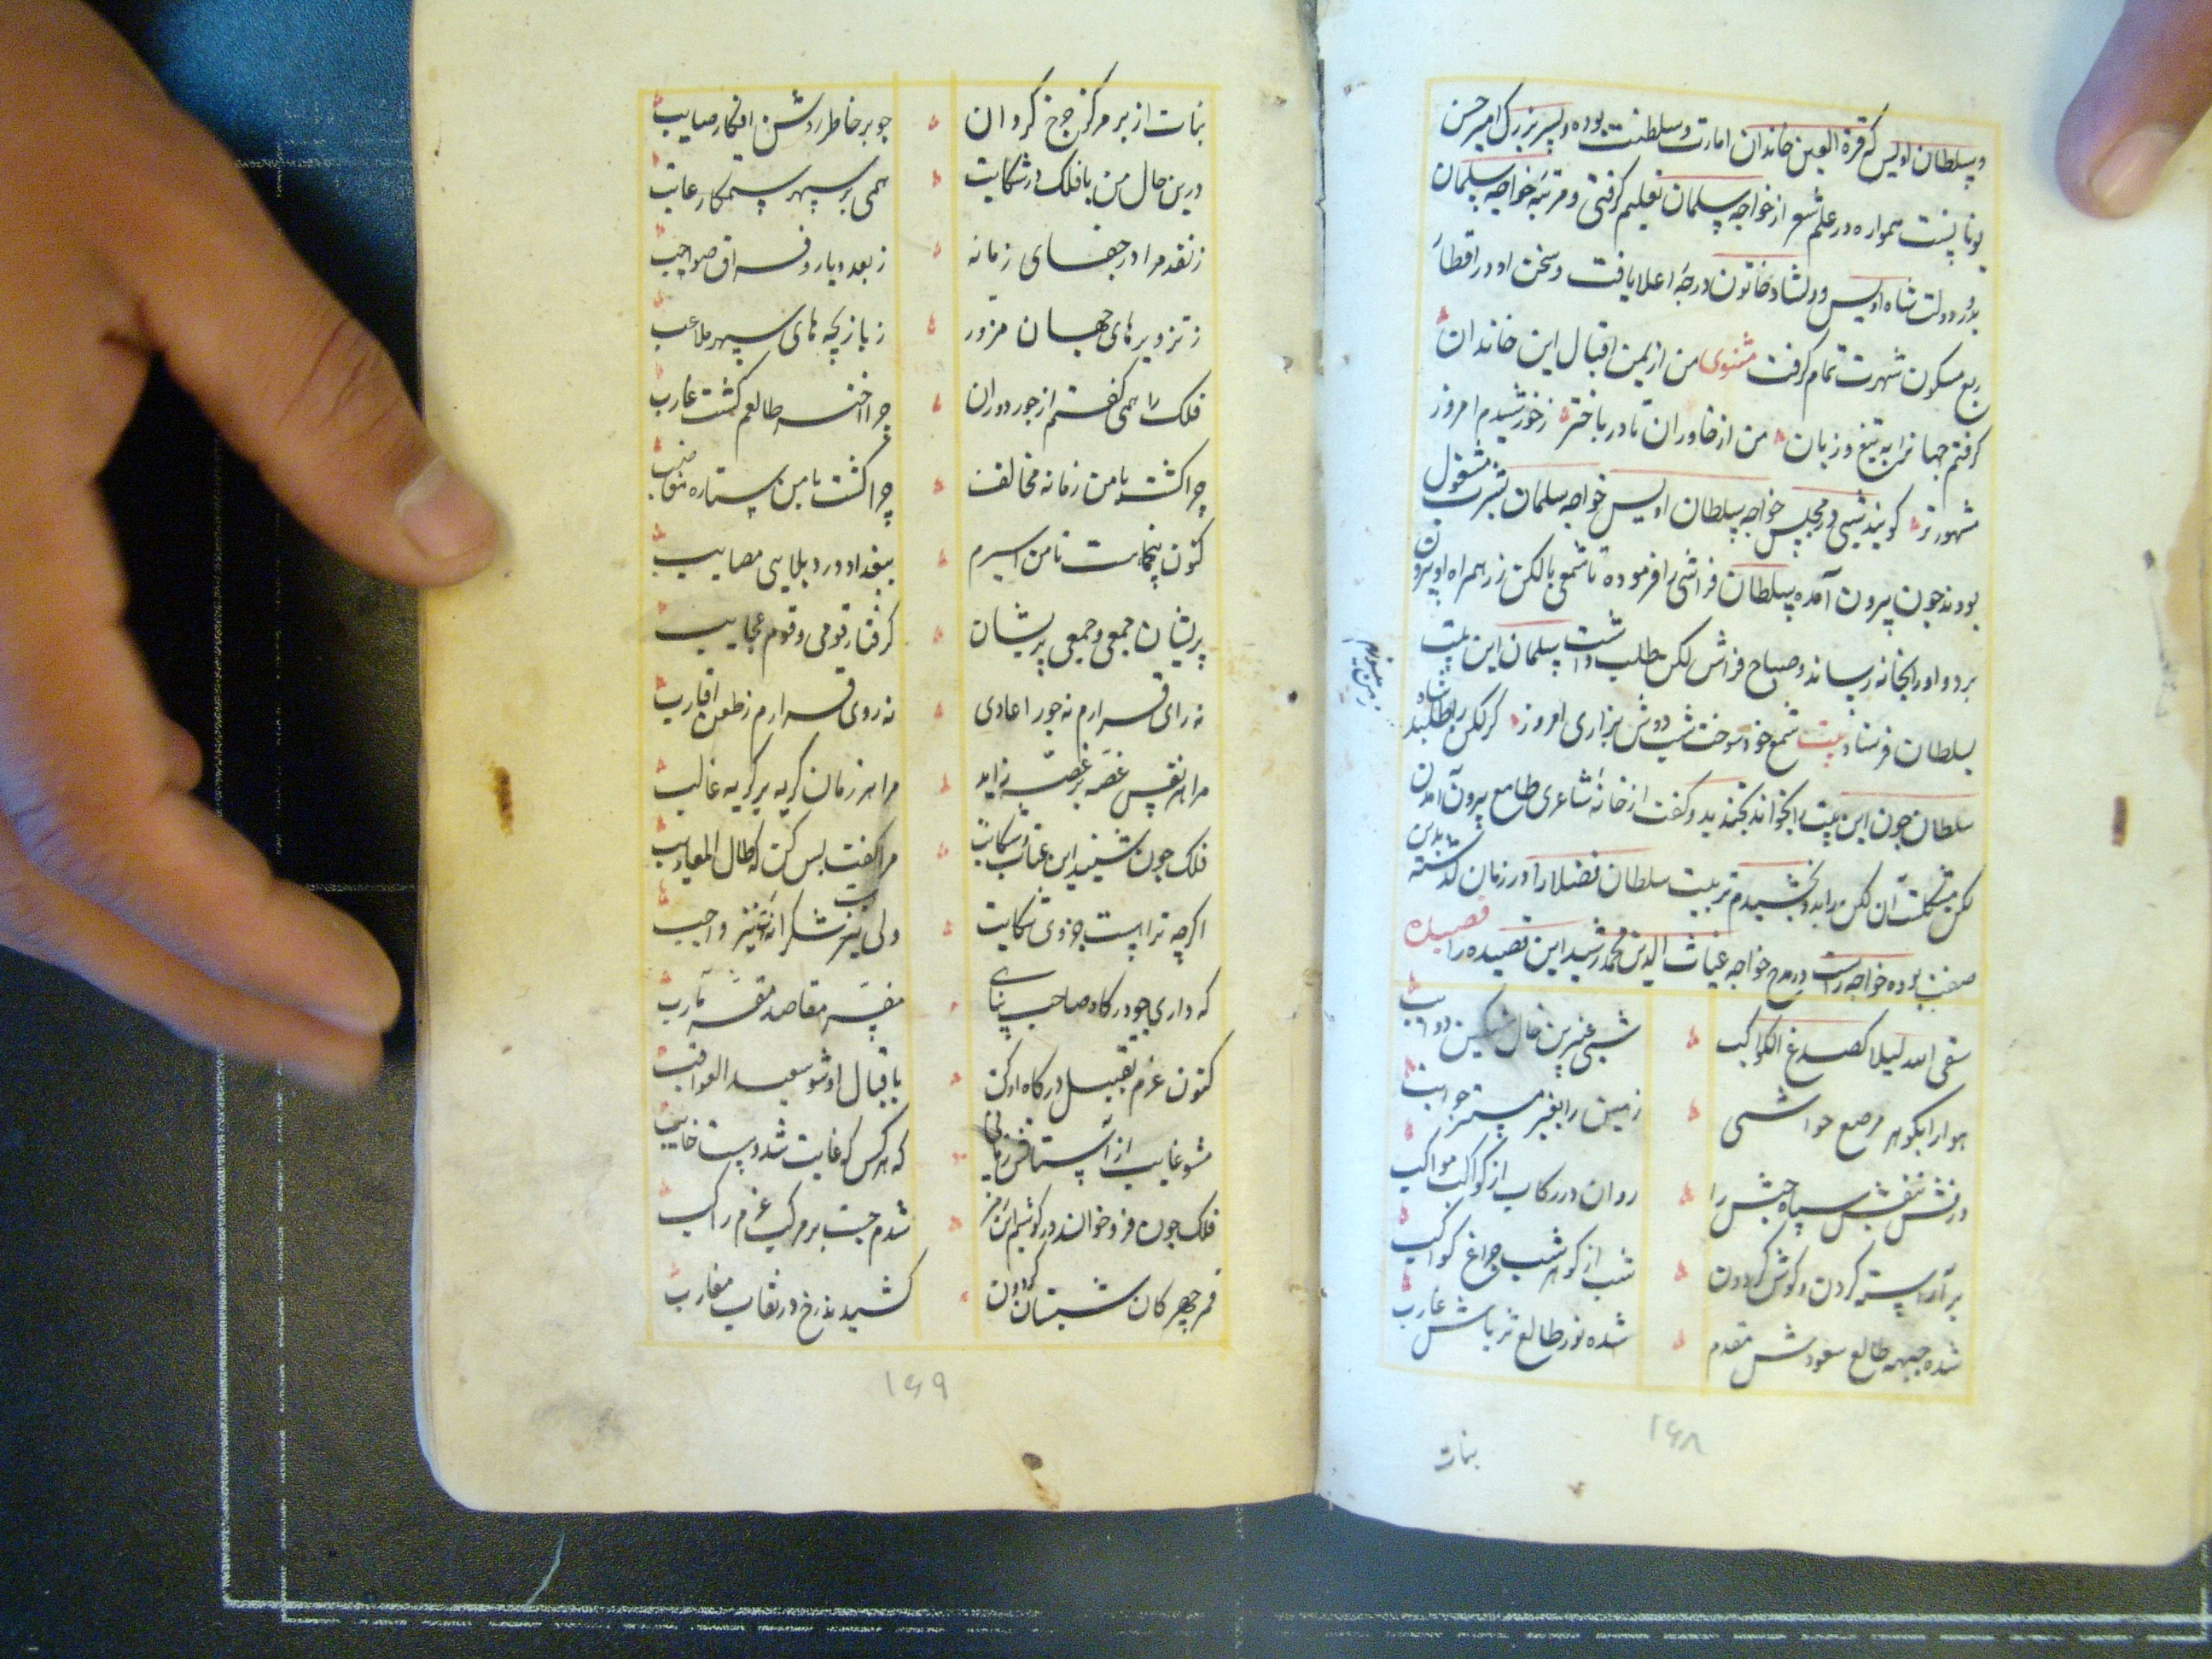 و سلطان اویس که قرة العین خاندان امارت و سلطنت بوده و پسر بزرک امیر حسن
نویانست همواره در علم شعر از خواجه سلمان تعلیم کرفتی و مرتبه خواجه سلمان
در دولت شاه اویس و دلشاد خاتون درجه اعلا یافت و سخن او در اقطار
ربع مسکون شهرت تمام کرفت مثنوی من از یمن اقبال این خاندان
کرفتم جهانرا به تیغ زبان من از خاوران تا در باختر ز خورشیدم امروز
مشهورتر کویند شبی در مجلس خواجه سلطان اویس خواجه سلمان بشرب مشغول
بودند چون بیرون آمده سلطان فراشی را فرموده تا شمعی با لکن زر همراه او بیرون
برد و او را بخانه رساند و صباح فراش لکن طلب داشت سلمان این بیت
بسلطان فرستاد بیت شمع خود سوخت شب دوش بزاری امروز کر لکن را طلبد شاه
ز من میسوزم
سلطان چون این بیت را بخواند بخندید و کفت از خانه شاعری طامع بیرون آمدن
لکن مشکلست آن لکن را بدو بخشیدم تربیت سلطان فضلا را در زمان کذشته بدین
صفت بوده خواجه راست در مدح خواجه غیاث الدین محمد رشید این قصیده را قصیده
سقی الله لیلا کصدغ الکواکب شبی عنبرین خال مشکین ذوایب
هوا را بکوهر مرصع حواشی زمین را بعنبر مستر جوانب
درفش بنفش سپاه حبش را روان در رکاب از کواکب مواکب
بر آراسته کردن و کوش کردون شب از کوهر شب چراغ کواکب
شده جبهه طالع سعودش مقدم شده نور طالع ثریاش غارب
بنات
۱۶۸
بنات از بر مرکز چرخ کردان چو بر خاطر روشن افکار صایب
درین حال من با فلک در شکایت همی بر سپهر ستمکار عاتب
ز نقد مرا در جفای زمانه ز بعد دیار و فراق صواحب
ز تزویرهای جهان مزور ز بازیچه های سپهر ملاعب
فلک را همی کفتم از جور دوران چرا اختر طالعم کشت غارب
چرا کشت با من زمانه مخالف چرا کشت با من ستاره مغاضب
کنون پنجاست تا من اسیرم ببغداد در دبلای مصایب
پریشان جمعی و جمعی پریشان کرفتار قومی و قوم عجایب
نه رای قرارم نه جور اعادی نه روی قرارم ز طعن اقارب
مرا هر نفس غصه بر غصه زاید مرا هر زمان کریه بر کریه غالب
فلک چون شنید این عتاب و شکایت مرا کفت بس کن که طال المعایب
اکرچه ترا هست جزوی شکایت ولی نیز شکرانه نیز واجب
که داری چو درکاه صاحب پناهی مفر مقاصد مقر مآرب
کنون عزم تقبیل درکاه او کن باقبال او شو سعید العواقب
مشو غایب از آستانش زمانی که هر کس که غایب شد و هست خایب
فلک چون فروخواند در کوشم این رمز شدم جست بر مرکب عزم راکب
قمر چهرکان شبستان کردون کشیدند رخ در نقاب مغارب
۱۶۹